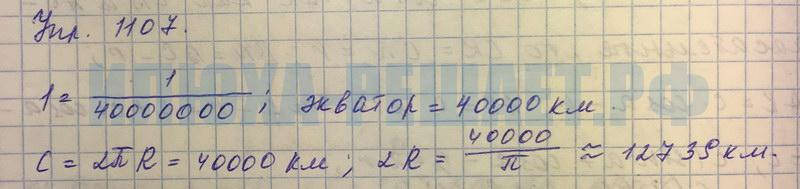 Упр. 1107.
ИПОХА-РЕШАЕТ.РФ
1 = 1/40000000 ; экватор = 40000 км.
C = 2πR = 40000 км ; 2R = 40000/π ≈ 12739 км.